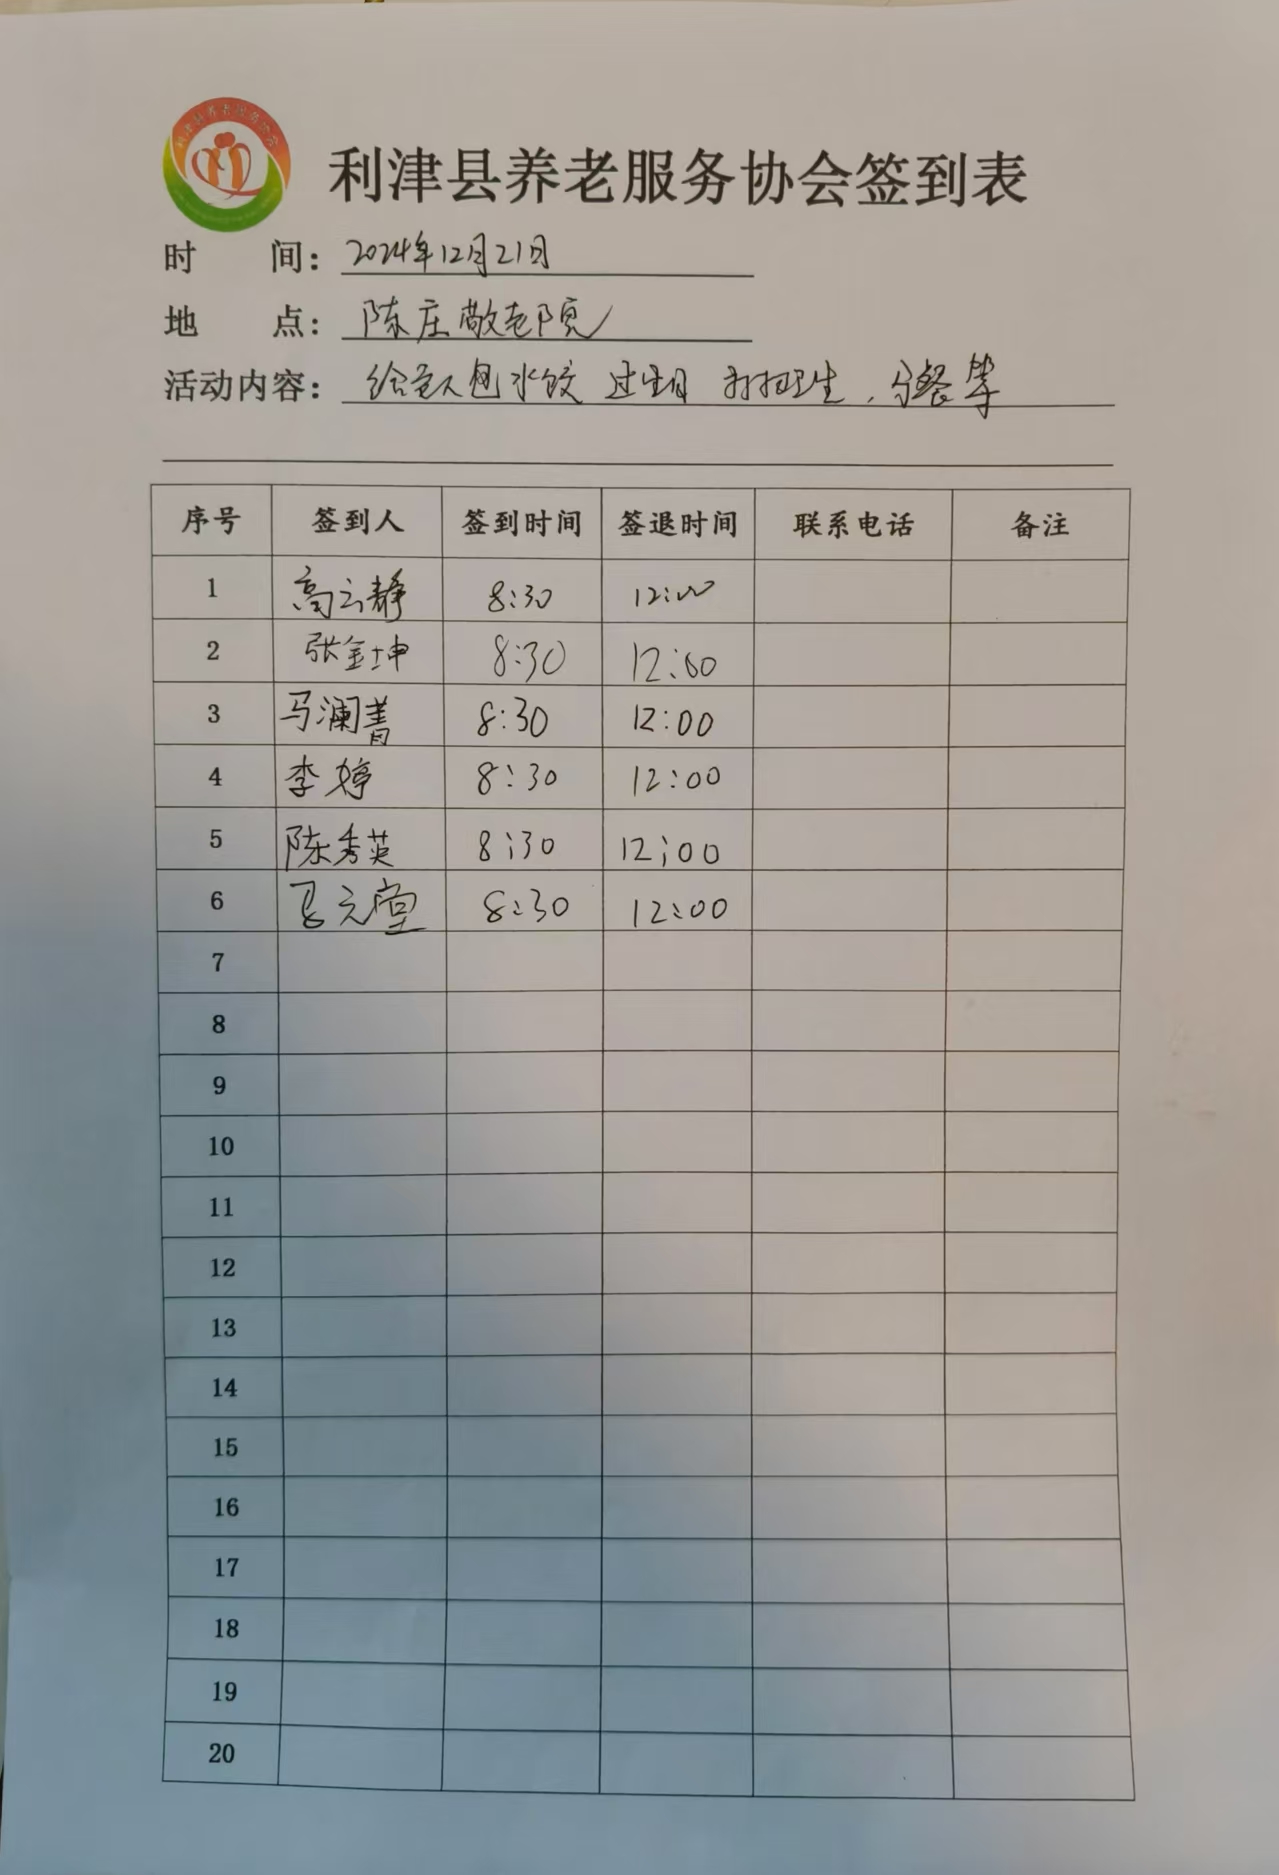 利津县养老服务协会
利津县养老服务协会签到表
时 间: 2024年12月21日
地 点: 陈庄敬老院
活动内容: 给老人包水饺 过生日 打扫卫生, 分餐等
序号 签到人 签到时间 签退时间 联系电话 备注
1 高云静 8:30 12:00
2 张金坤 8:30 12:00
3 马澜菁 8:30 12:00
4 李婷 8:30 12:00
5 陈秀英 8:30 12:00
6 元堂 8:30 12:00
7
8
9
10
11
12
13
14
15
16
17
18
19
20